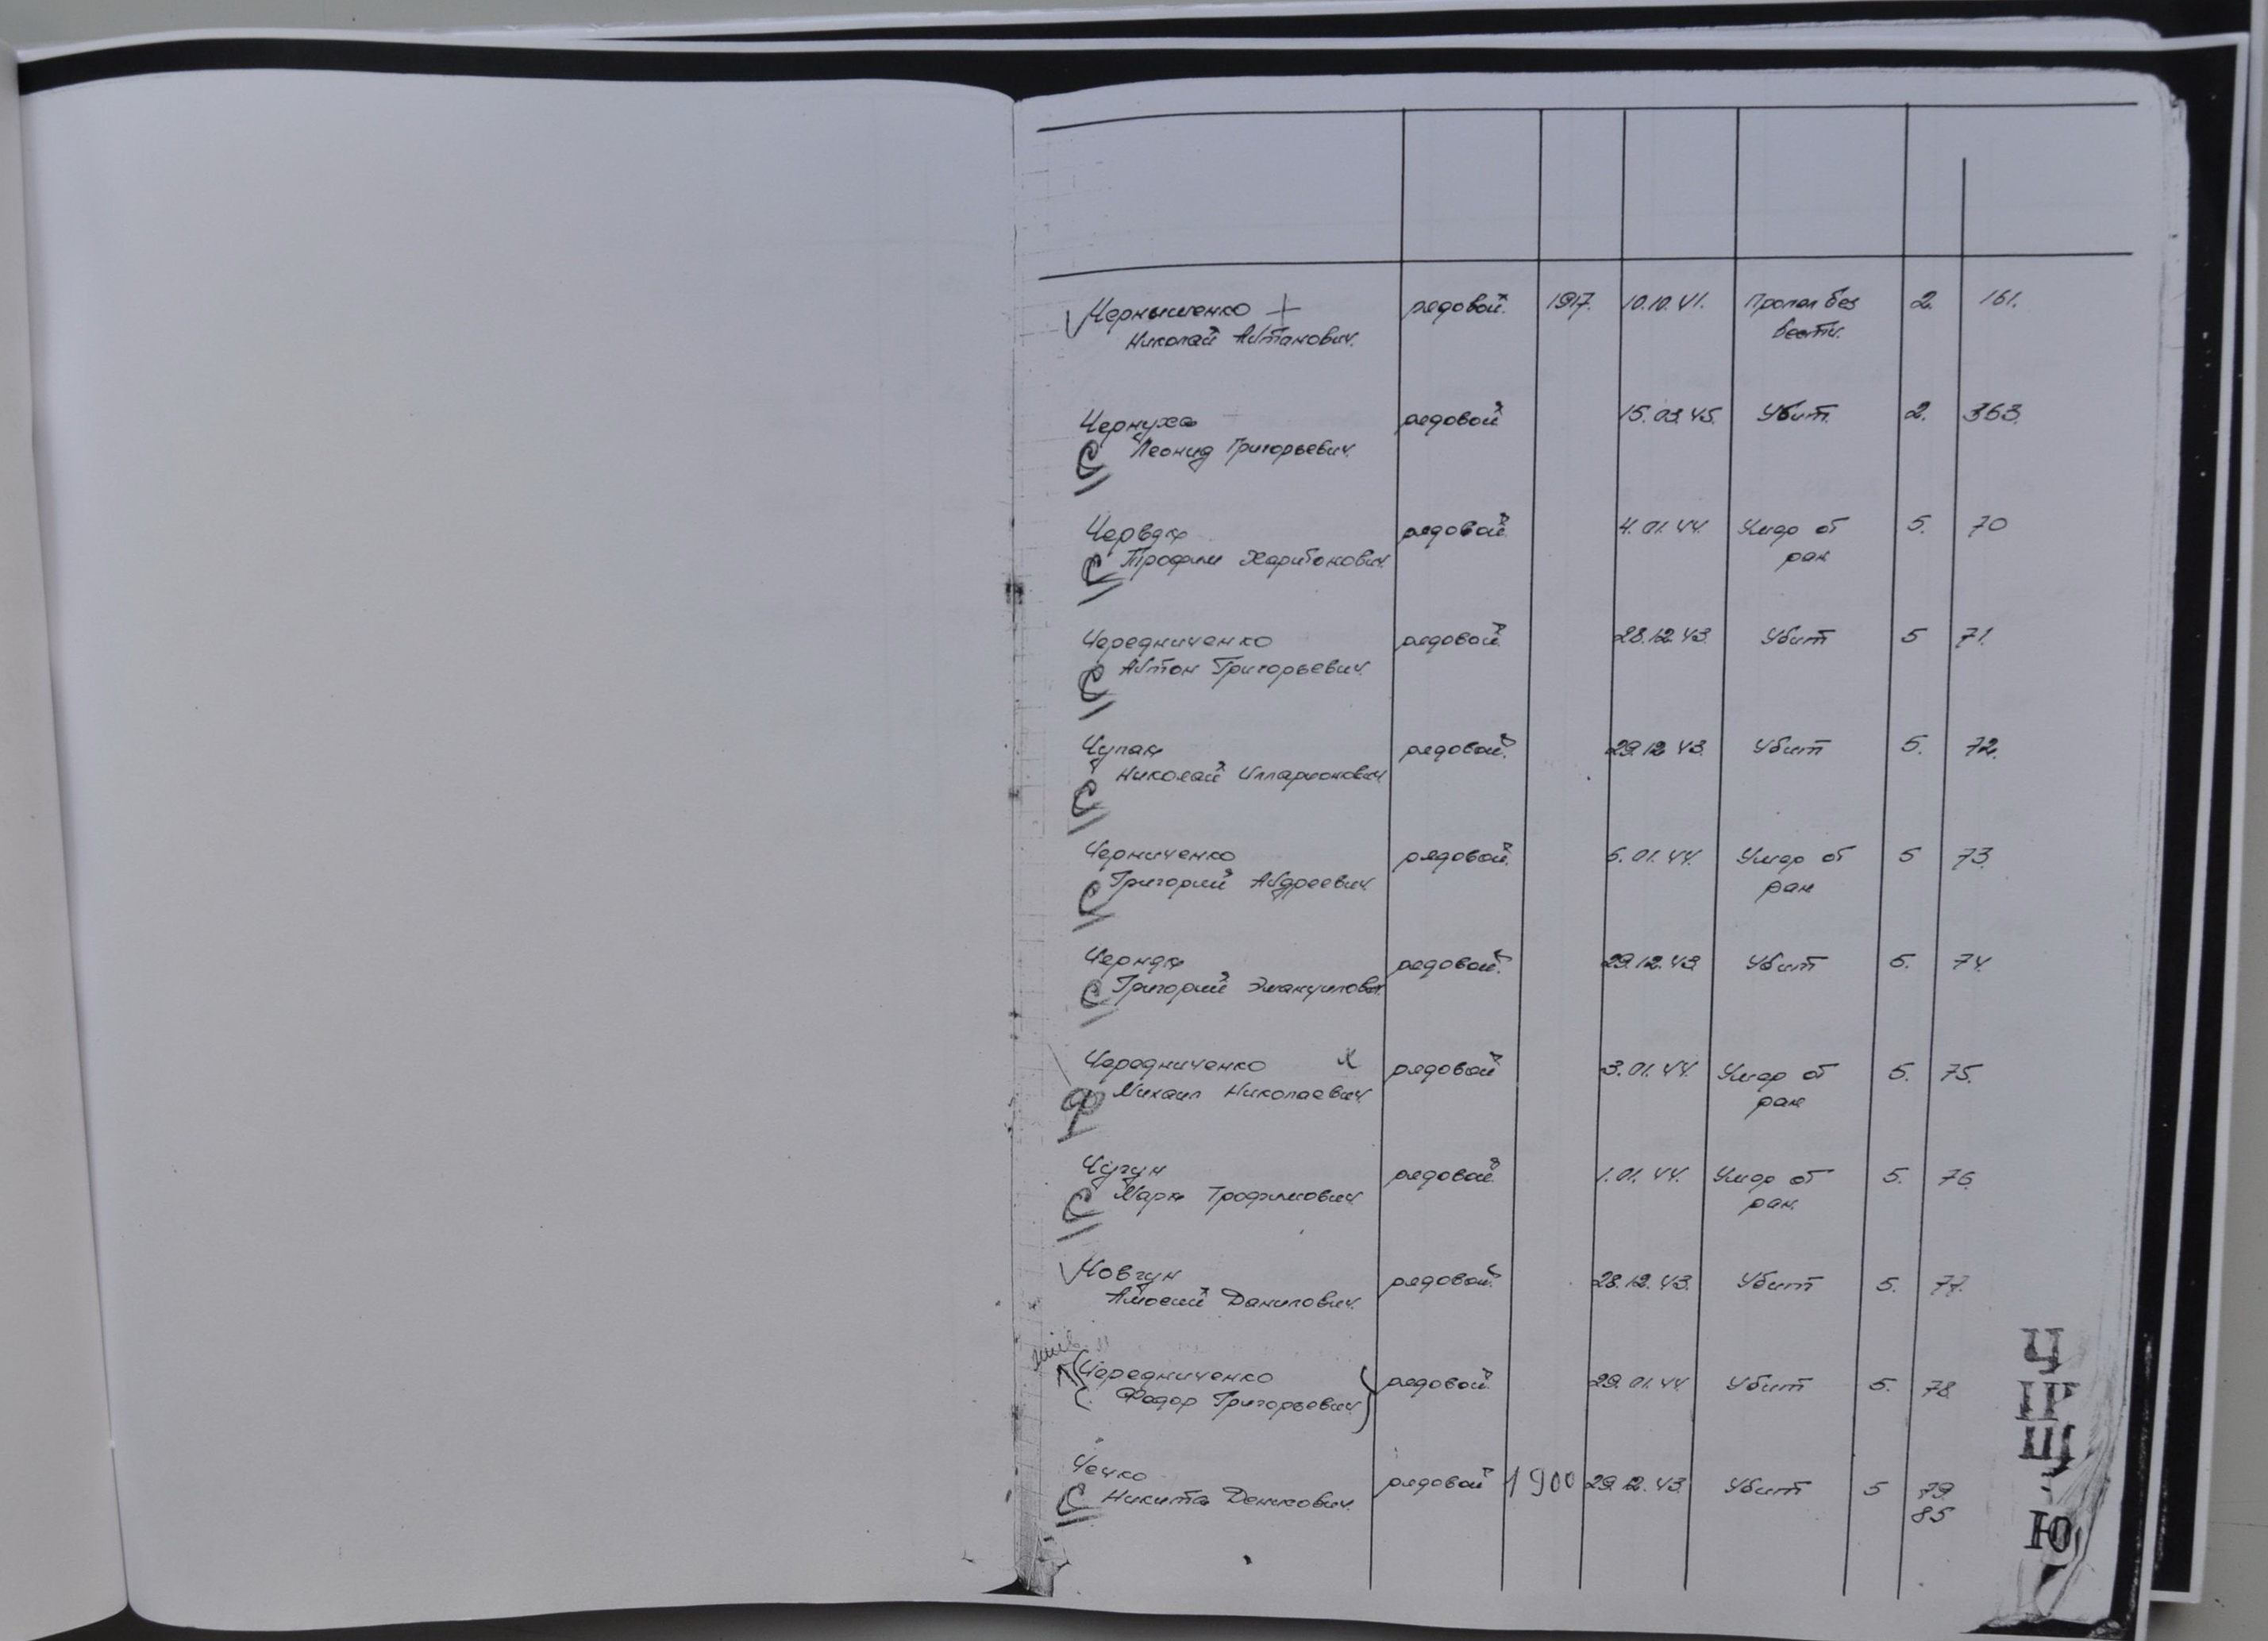 Чернышенко + рядовой. 1917. 10.10.41. Пропал без 2. 161.
Николай Антонович. вести.
Чернуха рядовой 15.03.45. Убит. 2. 363.
С Леонид Григорьевич.
Червяк рядовой 4.01.44. Умер от 5. 70
С Трофим Харитонович. ран
Чередниченко рядовой 28.12.43. Убит 5 71.
С Антон Григорьевич.
Чупак рядовой. 29.12.43. Убит 5. 72.
С Николай Илларионович
Черниченко рядовой. 5.01.44. Умер от 5 73.
С Григорий Андреевич. ран
Черняк рядовой. 29.12.43 Убит 5. 74.
С Григорий Эмануилович.
Чередниченко х рядовой 3.01.44. Умер от 5. 75.
Ф Михаил Николаевич. ран
Чугун рядовой. 1.01.44. Умер от 5. 76.
С Марк Трофимович. ран.
Човгун рядовой. 28.12.43. Убит 5. 77.
Амосий Данилович.
(Чередниченко рядовой. 29.01.44 Убит 5. 78
Федор Григорьевич)
Чечко рядовой 1900 29.12.43. Убит 5 79
С Никита Денисович. 85
Ч
Щ
Ю